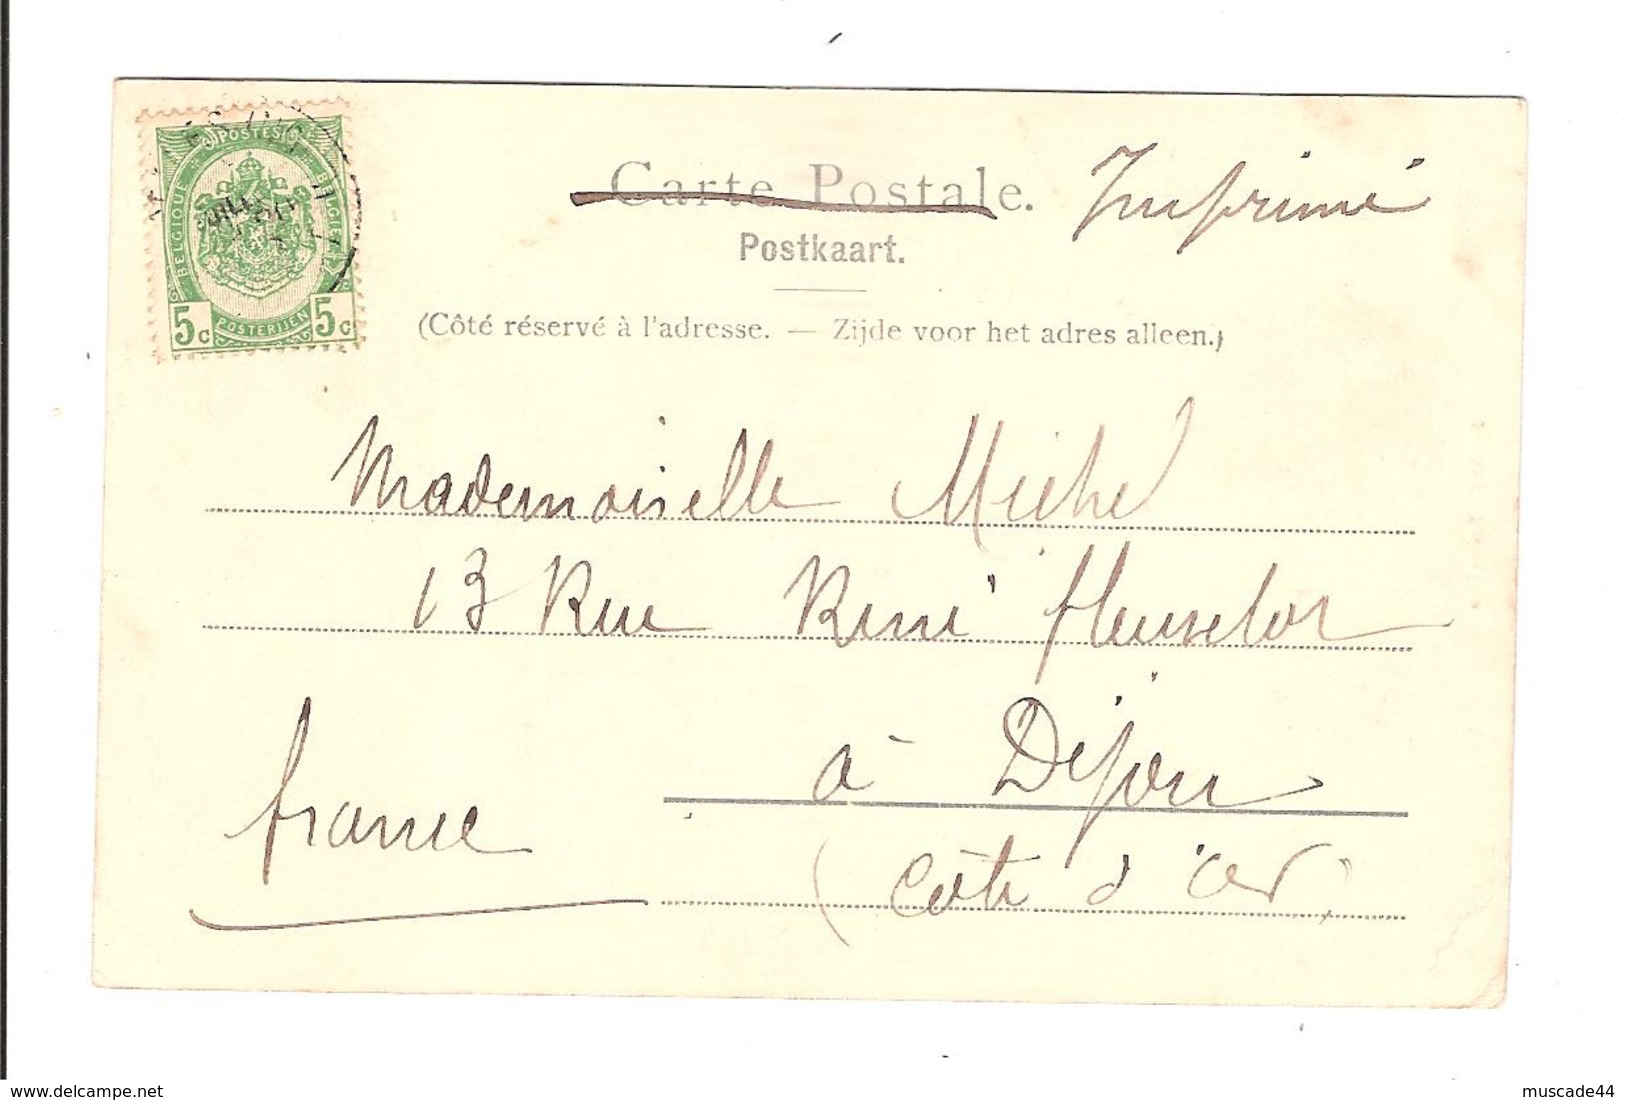 POSTES
BELGIQUE
BELGIE
5c
5c
POSTERIJEN
Carte Postale.
Imprimé
Postkaart.
(Côté réservé à l'adresse. — Zijde voor het adres alleen.)
Mademoiselle Michel
13 Rue René fleuselot
à Dijon
france
(Côte d'or)
www.delcampe.net
muscade44